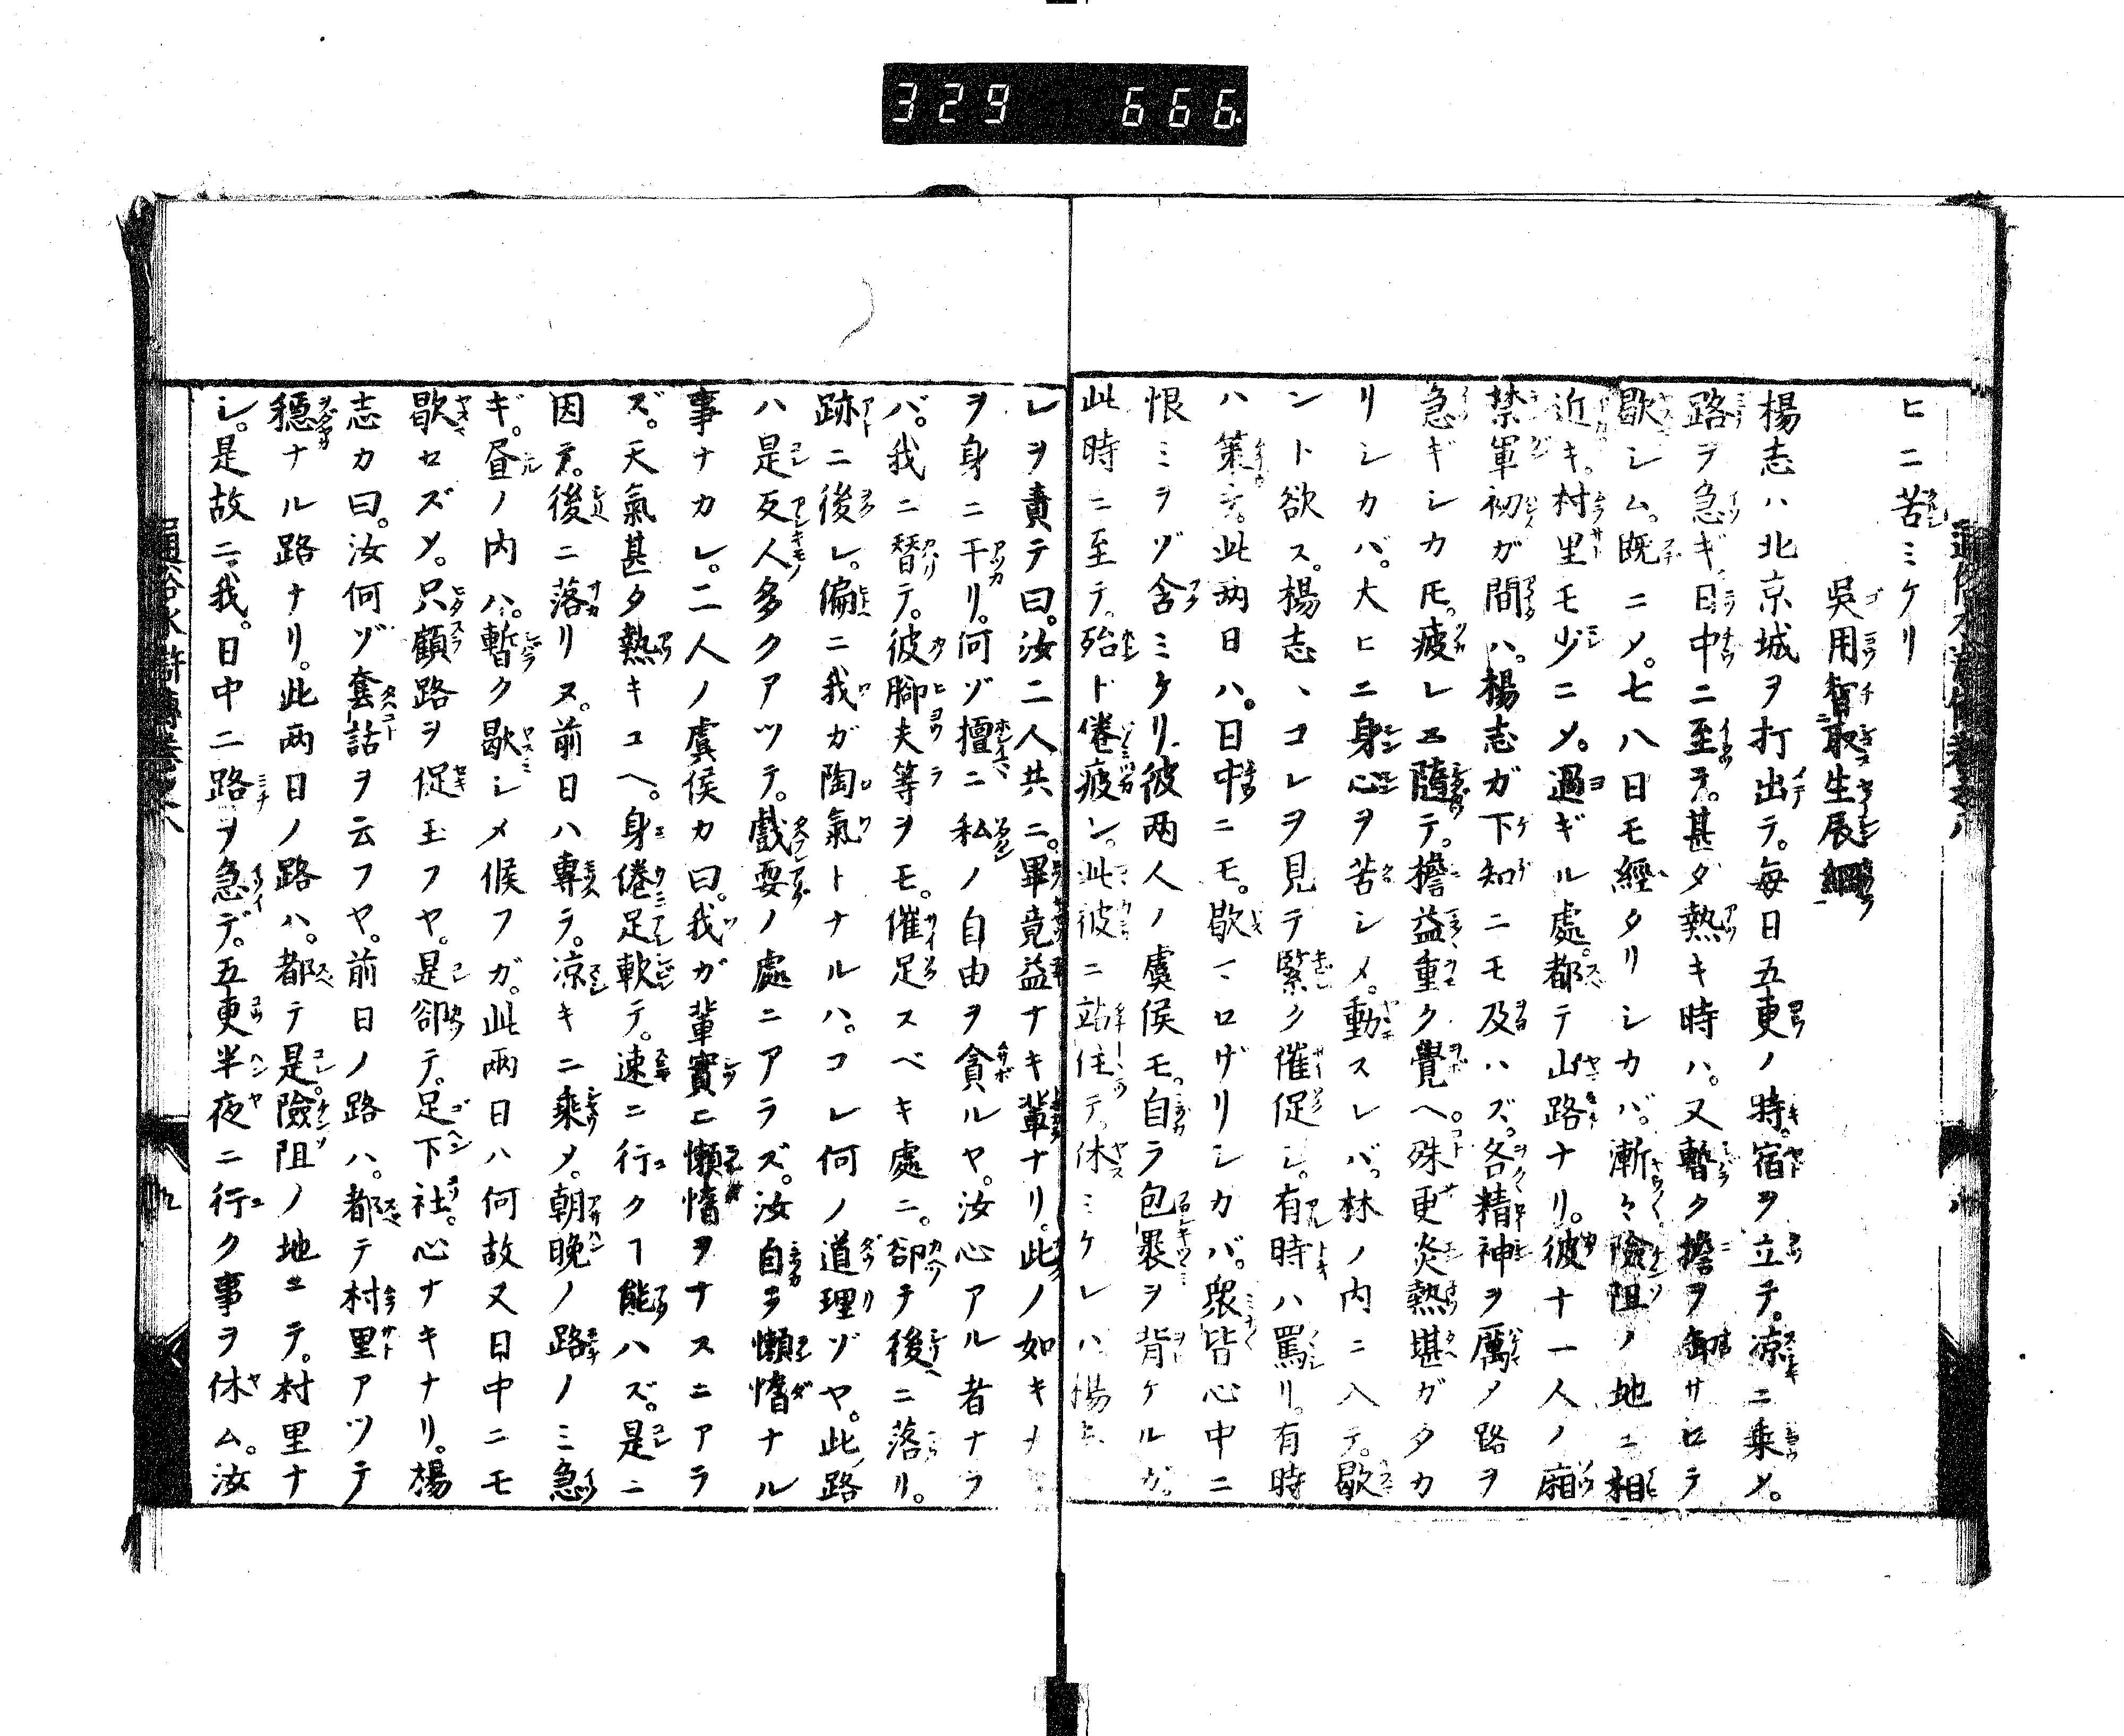 329 666
ヒニ苦ミケリ
吳用智取生辰綱
楊志ハ北京城ヲ打出テ。毎日五更ノ時。宿ヲ立テ。凉ニ乘メ。
路ヲ急ギ。日中ニ至テ。甚ダ熱キ時ハ。又暫ク擔ヲ卸サロテ
歇シム。既ニメ。七八日モ經タリシカバ。漸々險阻ノ地ニ相
近キ。村里モ少ニメ。過ギル處。都テ山路ナリ。彼十一人ノ廂
禁軍初ガ間ハ。楊志ガ下知ニモ及ハズ。各精神ヲ厲メ路ヲ
急ギシカ𪜈。疲レニ隨テ。擔益重ク覺ヘ。殊更炎熱堪ガタカ
リシカバ。大ヒニ身心ヲ苦シメ。動スレバ。林ノ内ニ入テ。歇
ント欲ス。楊志、コレヲ見テ緊ク催促シ。有時ハ罵リ。有時
ハ策テ。此两日ハ。日中ニモ。歇マロザリシカバ。衆皆心中ニ
恨ミヲゾ含ミケリ。彼两人ノ虞侯モ。自ラ包裹ヲ背ケルガ。
此時ニ至テ。殆ド倦疲レ。此彼ニ站住テ。休ミケレハ楊志
レヲ責テ曰。汝二人共ニ。畢竟益ナキ輩ナリ。此ノ如キノ
ヲ身ニ干リ。何ゾ擅ニ私ノ自由ヲ貪ルヤ。汝心アル者ナラ
バ。我ニ替テ。彼腳夫等ヲモ。催足スベキ處ニ。卻テ後ニ落リ。
跡ニ後レ。偏ニ我ガ陶氣トナルハ。コレ何ノ道理ゾヤ。此路
ハ是反人多クアツテ。戲耍ノ處ニアラズ。汝自ヲ懶惰ナル
事ナカレ。二人ノ虞侯カ曰。我ガ輩實ニ懶惰ヲナスニアラ
ズ。天氣甚タ熱キユヘ。身倦足軟テ。速ニ行クヿ能ハズ。是ニ
因テ。後ニ落リヌ。前日ハ專ラ。凉キニ乘メ。朝晚ノ路ノミ急
ギ。昼ノ内ハ。暫ク歇シメ候フガ。此兩日ハ何故又日中ニモ
歇セズメ。只顧路ヲ促玉フヤ。是卻テ。足下社。心ナキナリ。楊
志カ曰。汝何ゾ套話ヲ云フヤ。前日ノ路ハ。都テ村里アツテ
穩ナル路ナリ。此两日ノ路ハ。都テ是。險阻ノ地ニテ。村里ナ
シ。是故ニ。我。日中ニ路ヲ急デ。五更半夜ニ行ク事ヲ休ム。汝